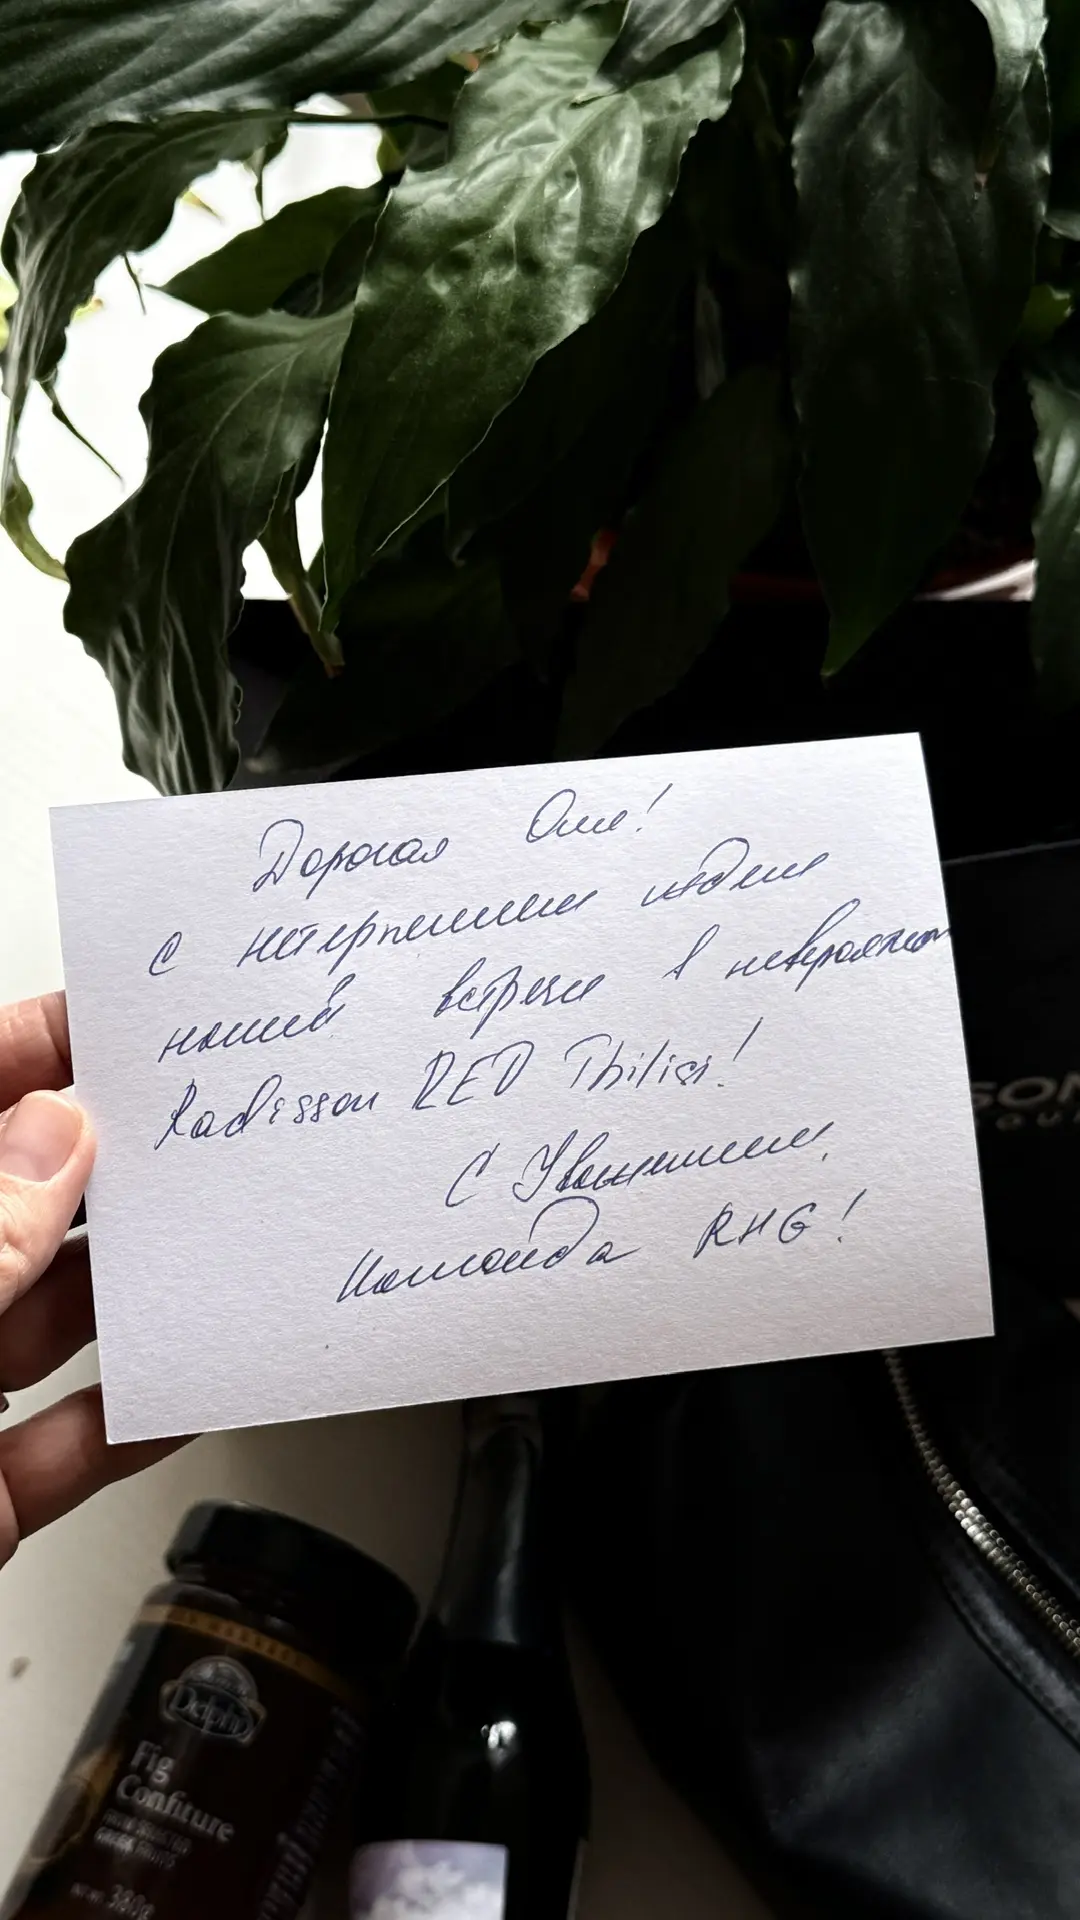 Дорогая Оля!
с нетерпением ждем
нашей встречи в невероятном
Radisson RED Tbilisi!
С Уважением,
Команда RHG!
SON
Delphi
Fig
Confiture
380g